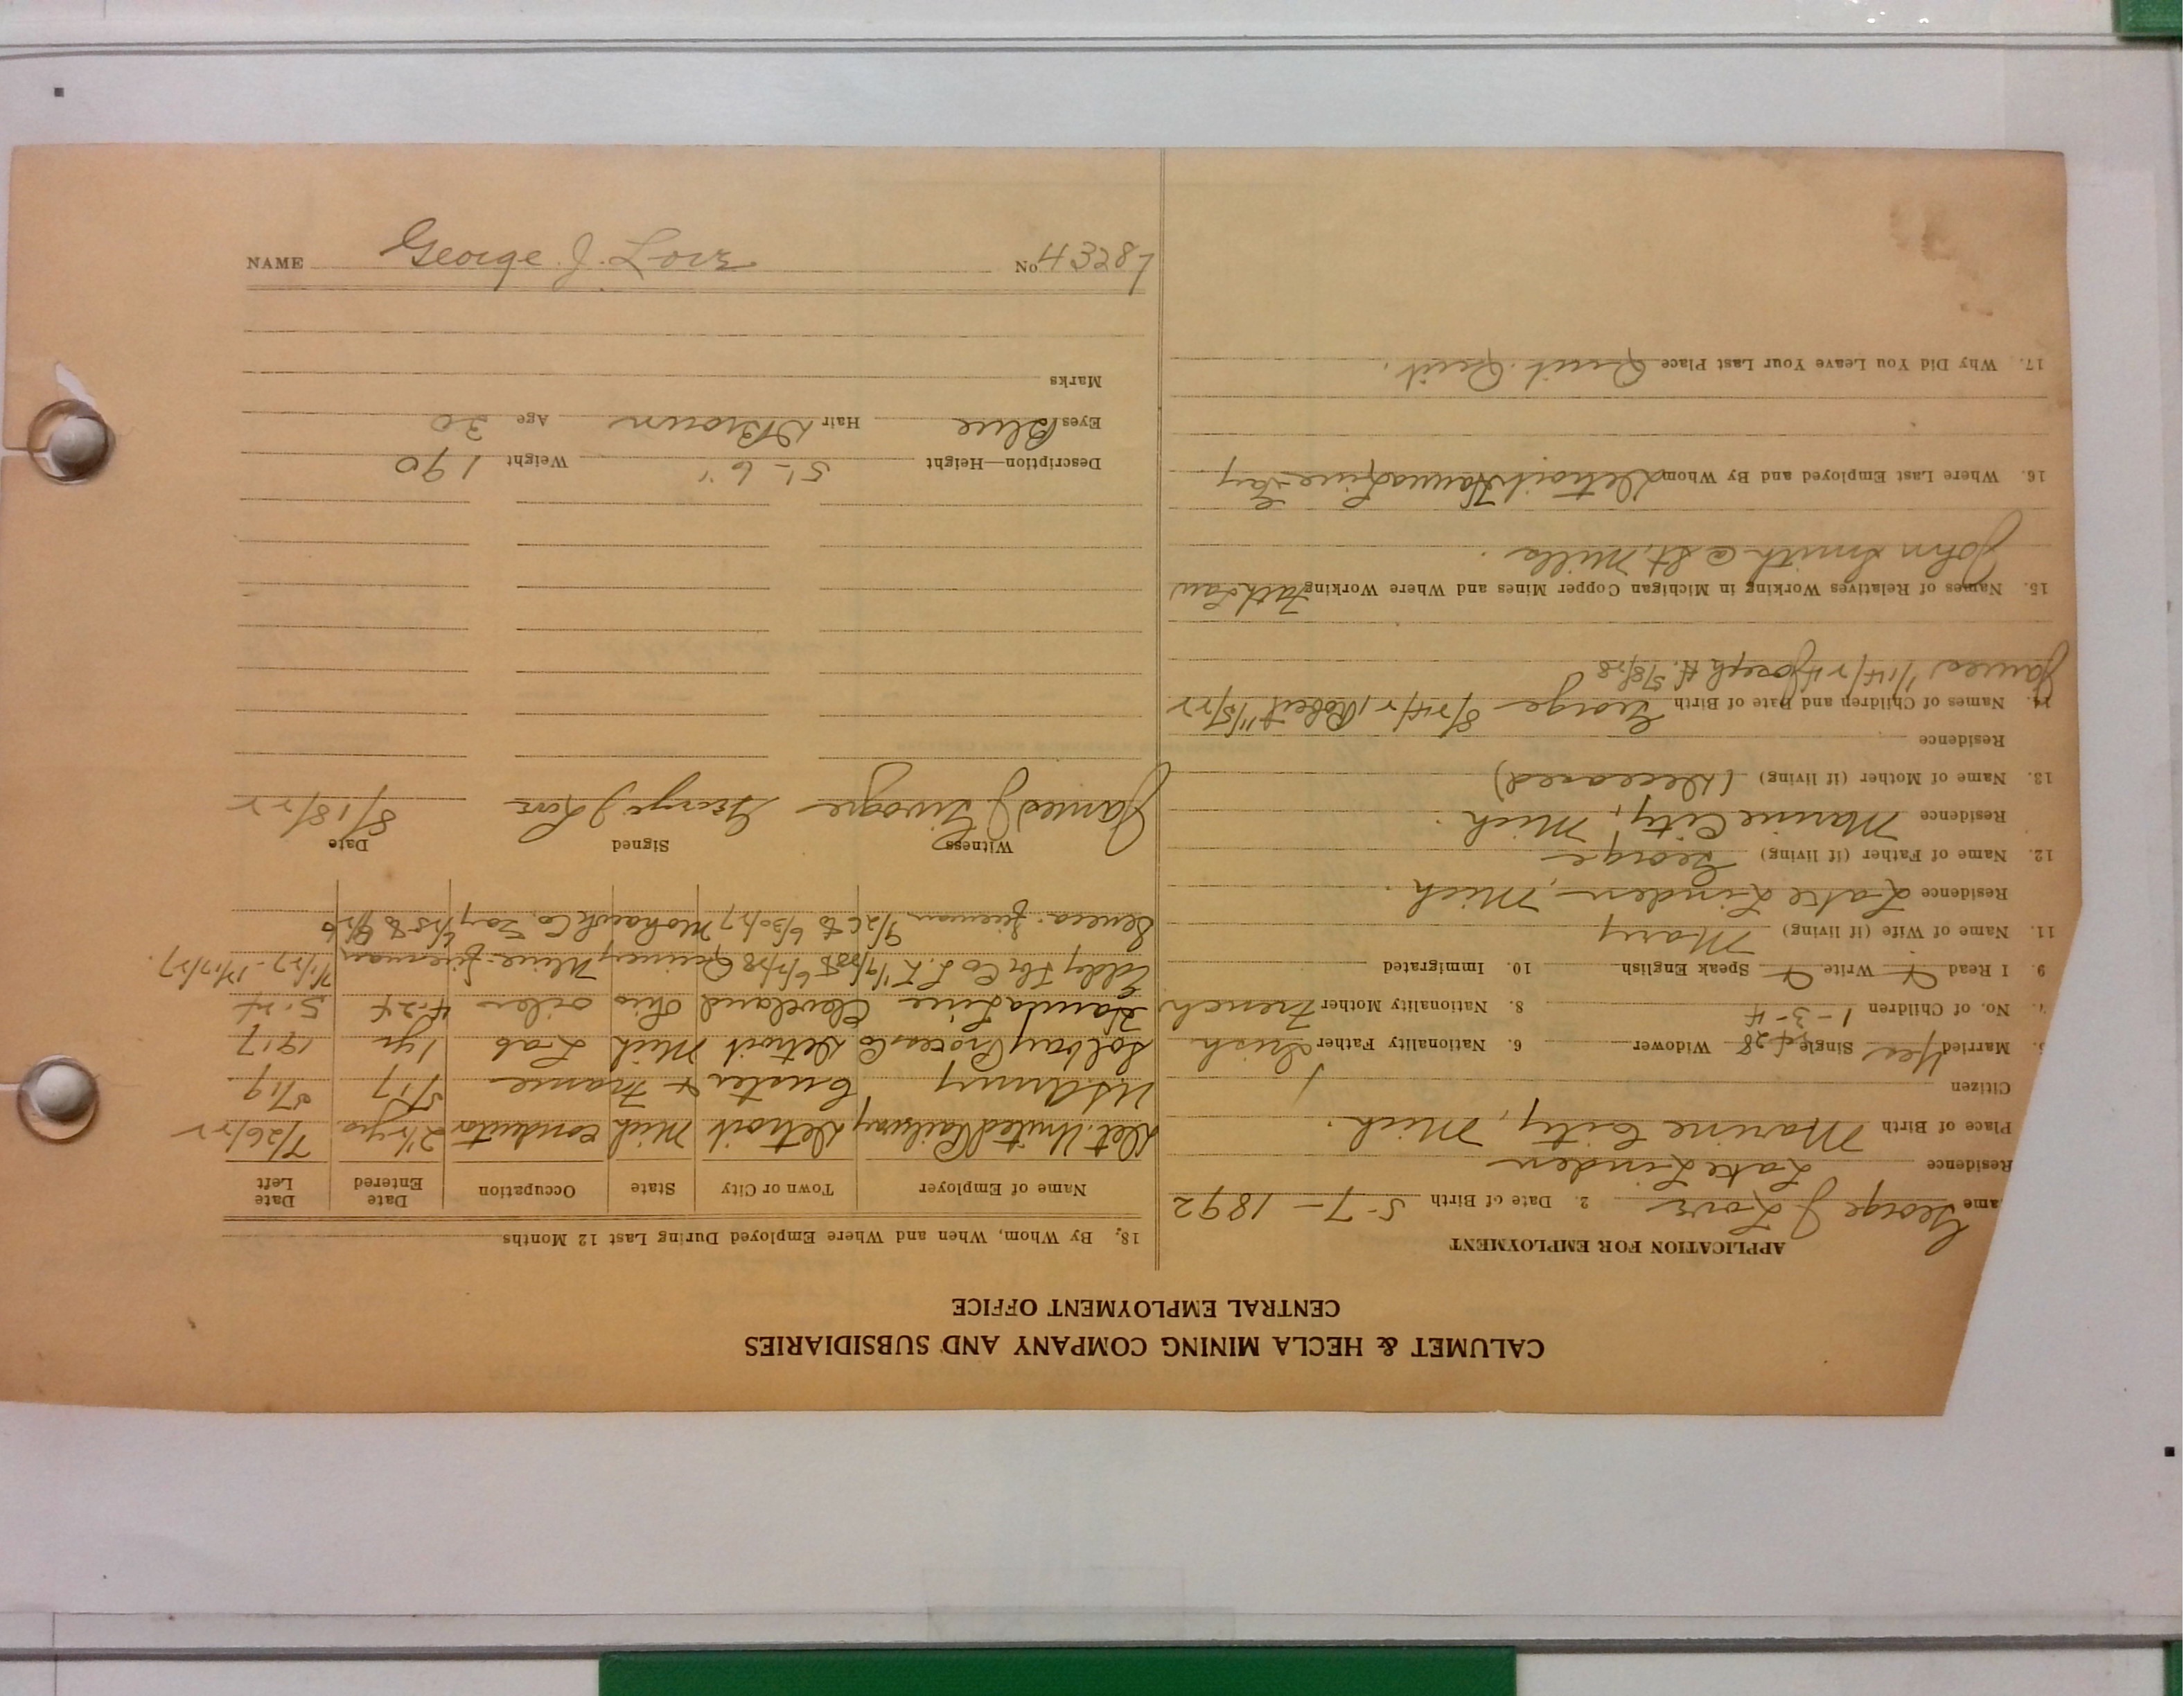 CALUMET & HECLA MINING COMPANY AND SUBSIDIARIES
CENTRAL EMPLOYMENT OFFICE
APPLICATION FOR EMPLOYMENT
ame George J Love 2. Date of Birth 5-7-1892
Residence Lake Linden
Place of Birth Marine City, Mich.
Citizen
Married Yes Single Widower 6. Nationality Father Irish
No. of Children 1-3-4 8. Nationality Mother French
9. I Read Write Speak English 10. Immigrated
11. Name of Wife (if living) Mary
Residence Lake Linden, Mich.
12. Name of Father (if living) George
Residence Marine City, Mich.
13. Name of Mother (if living) (Deceased)
Residence
14. Names of Children and Date of Birth George 8/24/21 Robert 11/5/22
James 1/14/24 Joseph H. 5/8/28
15. Names of Relatives Working in Michigan Copper Mines and Where Working Fath Law
John Smith @ St. Mills.
16. Where Last Employed and By Whom Detroit Hanna Line
17. Why Did You Leave Your Last Place Quit. Quit.
18. By Whom, When and Where Employed During Last 12 Months
Name of Employer Town or City State Occupation Date Entered Date Left
Det United Railway Detroit Mich Conductor 2 1/2 yrs 7/26/22
US Army Custer & France 5/17 5/19
Solvay Process Co Detroit Mich Lab 1 yr 1917
Hanna Line Cleveland Ohio oiler 4-24 5-24
Quincy Mine-fireman
Seneca. fireman 9/26 to 6/30/27 Mohawk Co.
Witness Signed Date
James J George J Love 8/18/22
Description—Height 5'-6" Weight 190
Eyes Blue Hair D Brown Age 30
Marks
NAME George J. Love No. 43287